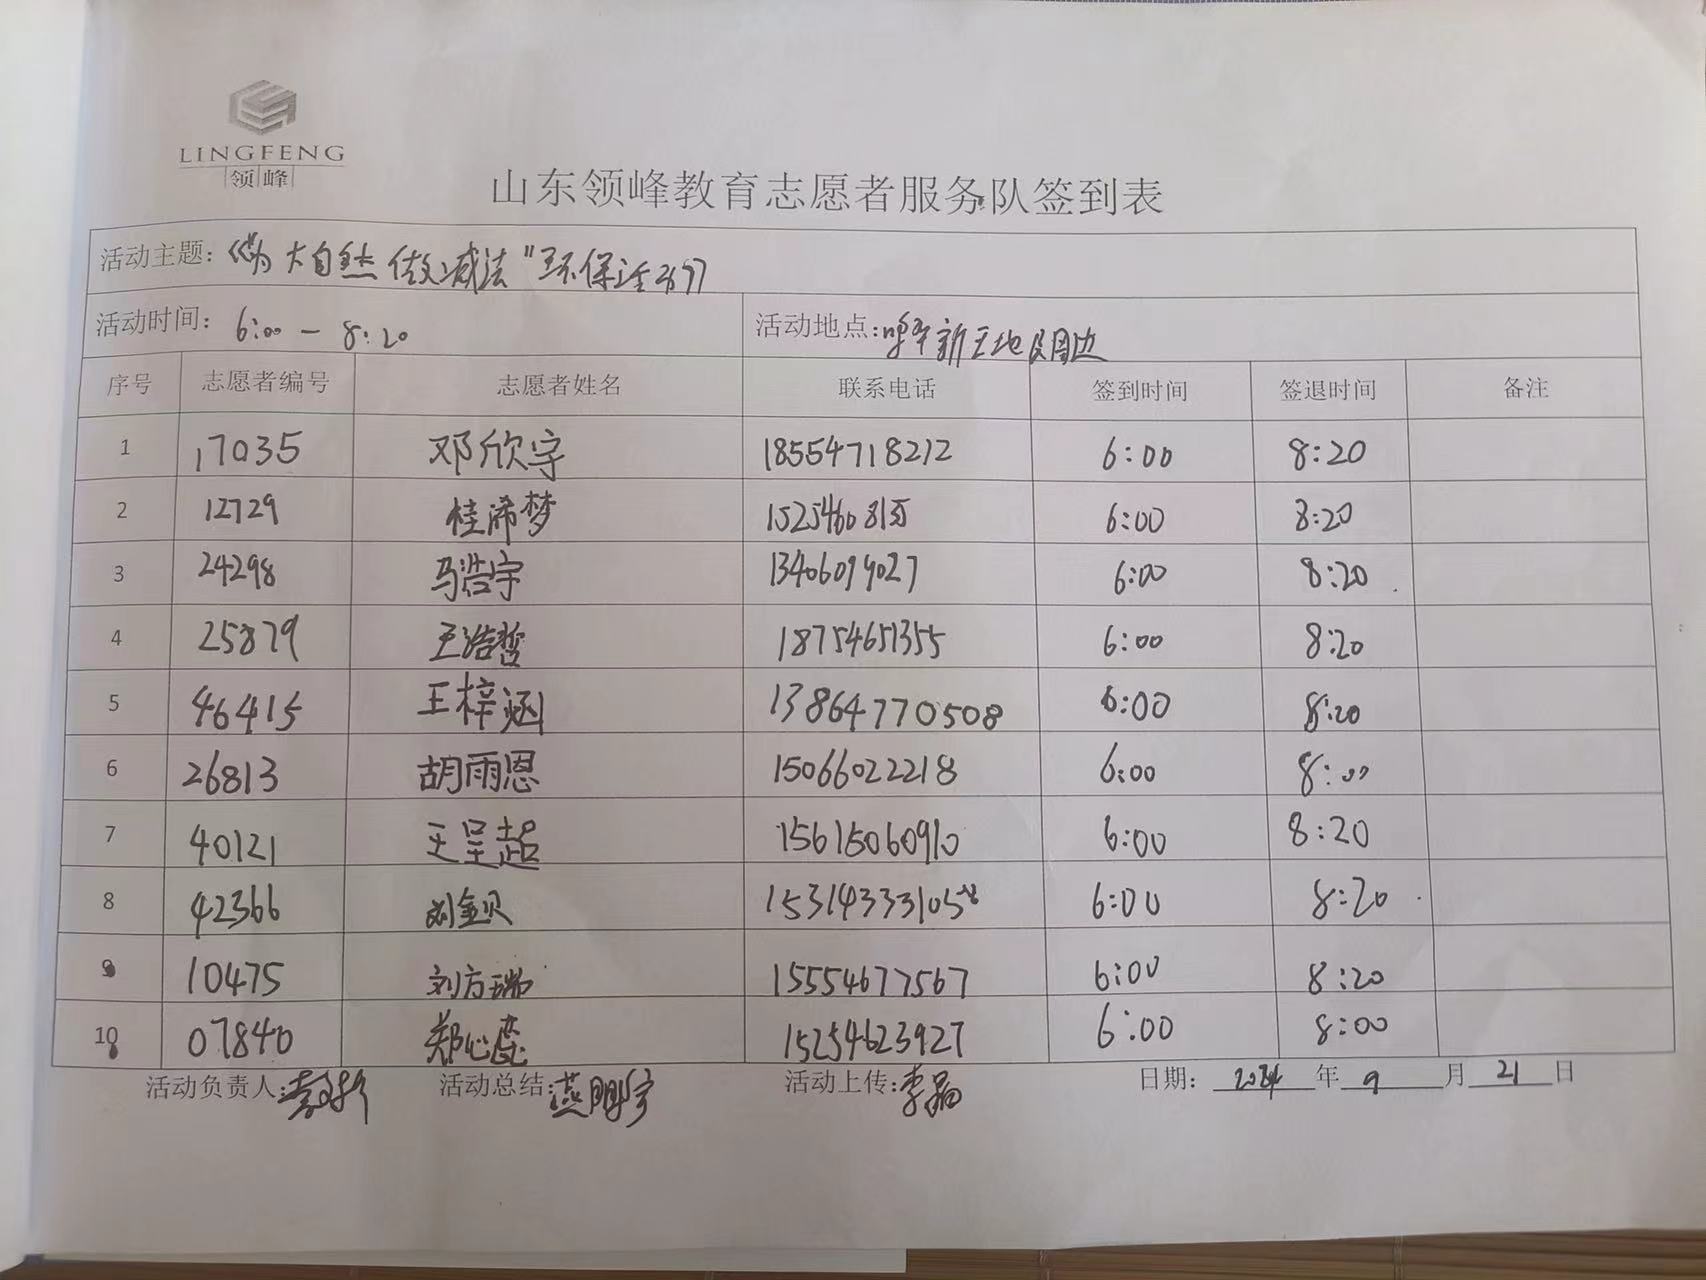 LINGFENG
领峰
山东领峰教育志愿者服务队签到表
活动主题: 《"为大自然做减法"环保活动》
活动时间: 6:00 — 8:20 活动地点: 新天地及周边
序号 志愿者编号 志愿者姓名 联系电话 签到时间 签退时间 备注
1 17035 邓欣宇 18554718212 6:00 8:20
2 12729 桂浠梦 6:00 8:20
3 24298 马浩宇 13406099027 6:00 8:20
4 25879 王浩哲 18754651355 6:00 8:20
5 46415 王梓涵 13864770508 6:00 8:20
6 26813 胡雨恩 15066022218 6:00 8:00
7 40121 王呈超 15615060910 6:00 8:20
8 42366 刘金贝 6:00 8:20
9 10475 刘方瑞 15554677567 6:00 8:20
10 07840 郑心蕊 15254623927 6:00 8:00
活动负责人: 活动总结: 燕鹏宇 活动上传: 李晶 日期: 2024 年 9 月 21 日